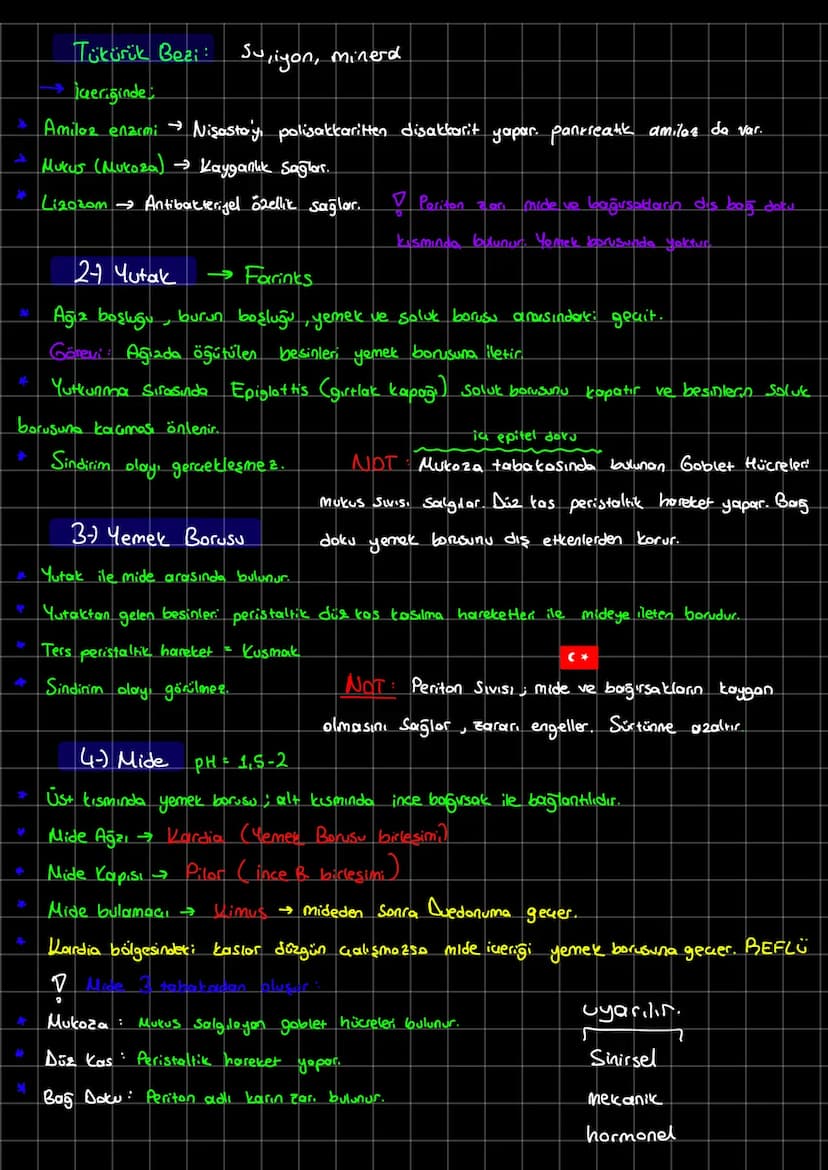 Tükürük Bezi: Su, iyon, mineral
→ İçeriğinde;
* Amilaz enzimi → Nişasta'yı polisakkaritten disakkarit yapar. pankreatik amilaz da var.
* Mukus (Mukoza) → Kayganlık sağlar.
* Lizozom → Antibakteriyel özellik sağlar. ! Periton zarı mide ve bağırsakların dış bağ doku
kısmında bulunur. Yemek borusunda yoktur.
2-) Yutak → Farinks
* Ağız boşluğu, burun boşluğu, yemek ve soluk borusu arasındaki geçit.
Görevi: Ağızda öğütülen besinleri yemek borusuna iletir.
* Yutkunma sırasında Epiglottis (gırtlak kapağı) soluk borusunu kapatır ve besinlerin soluk
borusuna kaçması önlenir.
içi epitel doku
* Sindirim olayı gerçekleşmez. NOT: Mukoza tabakasında bulunan Goblet Hücreleri
mukus sıvısı salgılar. Düz kas peristaltik hareket yapar. Bağ
3-) Yemek Borusu doku yemek borusunu dış etkenlerden korur.
* Yutak ile mide arasında bulunur.
* Yutaktan gelen besinleri peristaltik düz kas kasılma hareketleri ile mideye ileten borudur.
* Ters peristaltik hareket = Kusmak
* Sindirim olayı görülmez. NOT: Periton Sıvısı; mide ve bağırsakların kaygan
olmasını sağlar, zararı engeller. Sürtünme azaltır.
4-) Mide pH = 1,5-2
* Üst kısmında yemek borusu; alt kısmında ince bağırsak ile bağlantılıdır.
* Mide Ağzı → Kardia (Yemek Borusu birleşimi)
* Mide Kapısı → Pilor (ince B. birleşimi)
* Mide bulamacı → Kimus → mideden sonra Duedonuma geçer.
* Kardia bölgesindeki kaslar düzgün çalışmazsa mide içeriği yemek borusuna geçer. REFLÜ
! Mide 3 tabakadan oluşur:
* Mukoza: Mukus salgılayan goblet hücreleri bulunur.
* Düz Kas: Peristaltik hareket yapar.
* Bağ Doku: Periton adlı karın zarı bulunur.
uyarılır.
Sinirsel
mekanik
hormonel